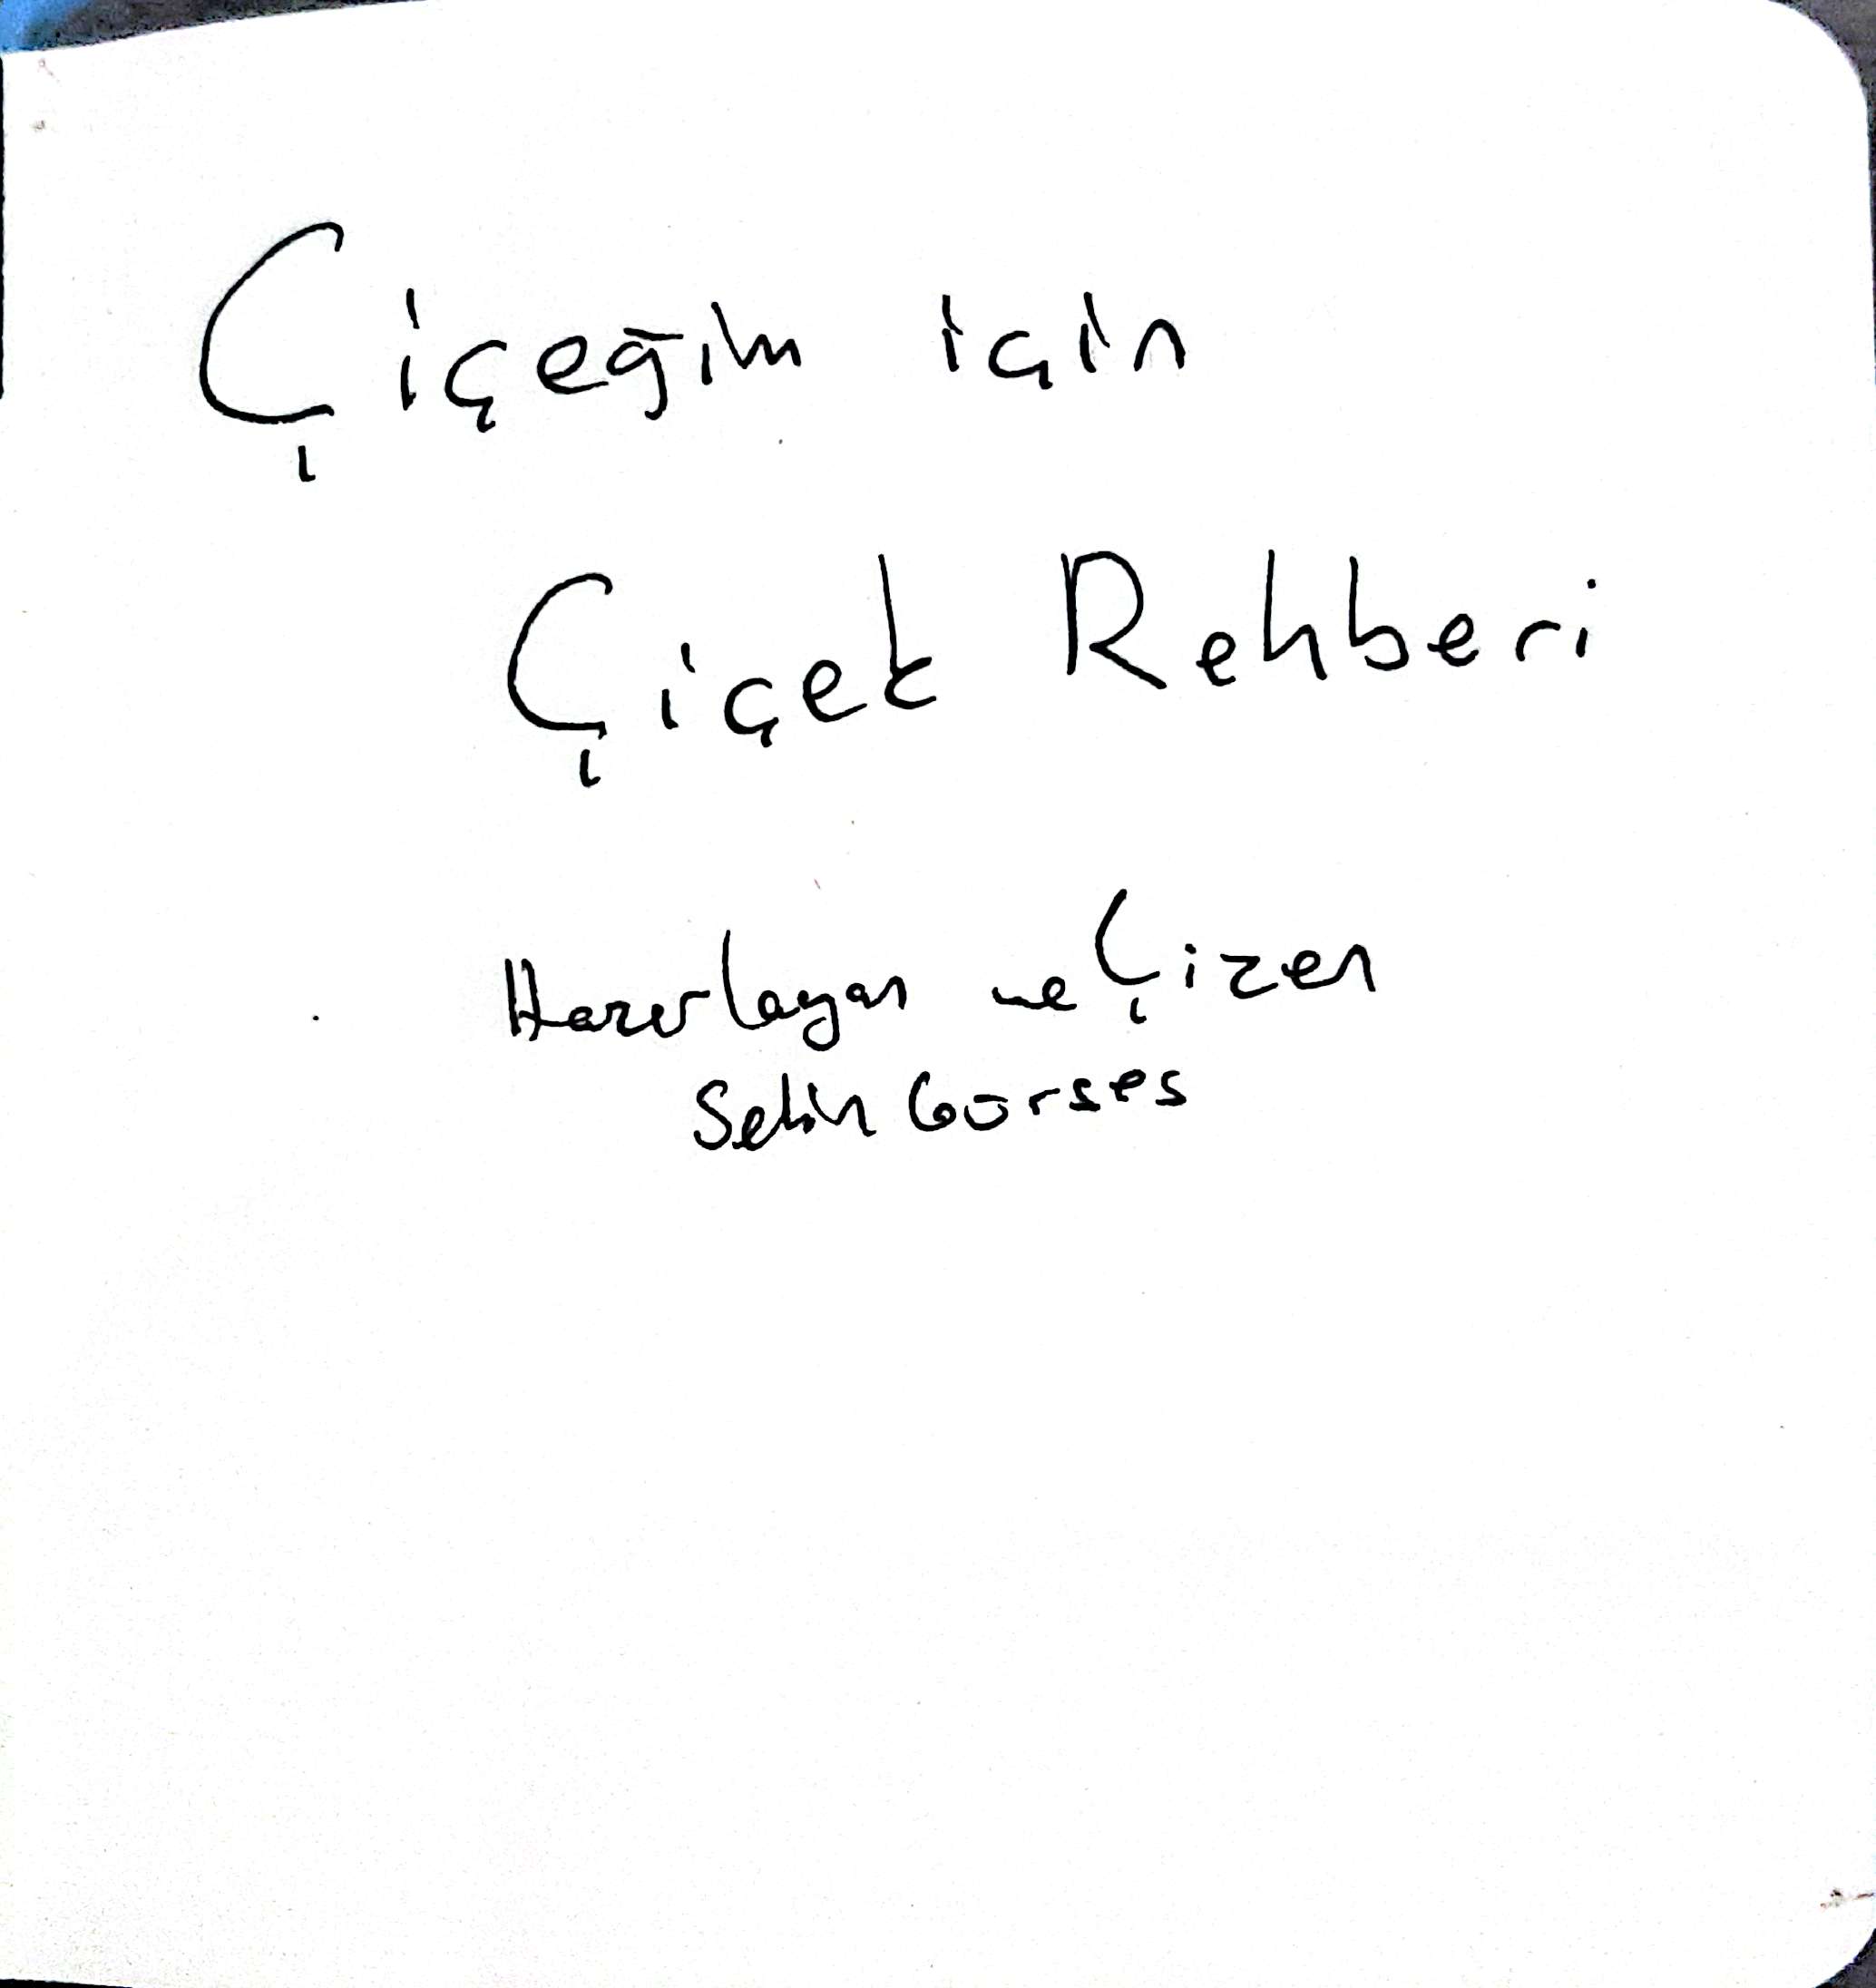 Çiçeğim için
Çiçek Rehberi
Hazırlayan ve Çizen
Selin Gürses